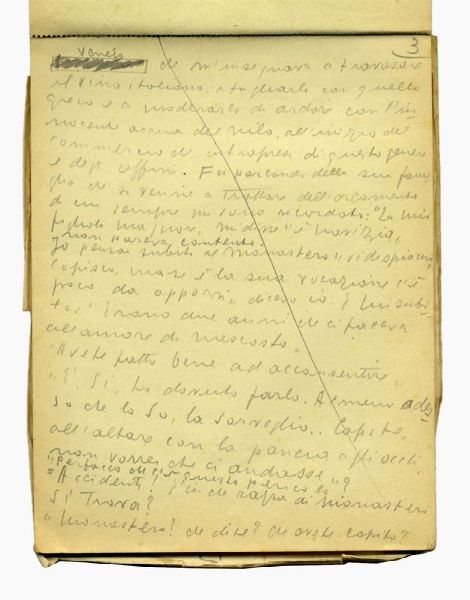 3
Veneto
che m'insegnava a travasare
il vino italiano, a tagliarlo con quello
greco e a moderarlo di ardore con l'in-
nocente acqua del nilo, all'inizio del
commercio di intrapresa di questo genere
e degli affari. Fu parlando della sua fami
glia che si venne a trattare dell'argomento
di cui sempre mi sono ricordato: "La mia
figliola maggiore, mi disse "è novizia,
non pareva contento.
Io pensai subito al monastero "vi dispiace,
capisco, ma se è la sua vocazione c'è
poco da opporsi", dicevo io. E lui subi-
to, "Erano due anni che ci faceva
all'amore di nascosto"
"Avete fatto bene ad acconsentire"
"E! Sì, ho dovuto farlo. Almeno ades
so che lo so, la sorveglio.. Capite,
all'altare con la pancia agli occhi
non vorrei che ci andasse"
"Perbacco che c'è questo pericolo"?
"Accidenti! E in che razza di monastero
si trova?
"Monastero? che dite? Che avete capito?